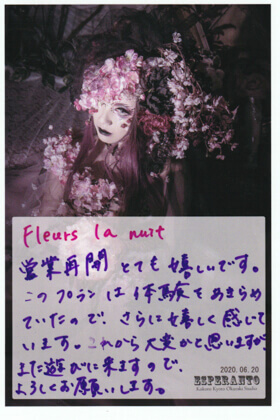 Fleurs la nuit
営業再開 とても嬉しいです。
このプランは体験をあきらめ
ていたので、さらに嬉しく感じて
います。これから大変かと思いますが
また遊びに来ますので、
よろしくお願いします。
2020. 06. 20
ESPERANTO
Kakura Kyoto Ohasshi Studio